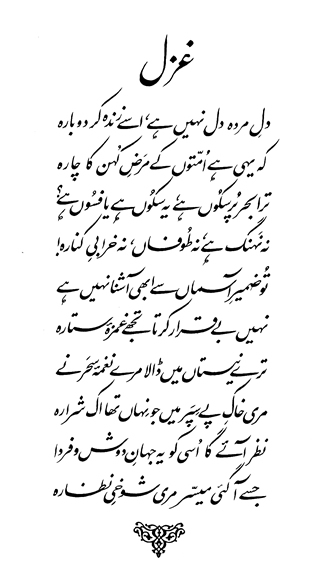 غزل
دلِ مردہ دل نہیں ہے، اسے زندہ کر دوبارہ
کہ یہی ہے اُمّتوں کے مَرَضِ کُہن کا چارہ
ترا بحر پُرسکوں ہے، یہ سکُوں ہے یا فسُوں ہے؟
نہ نَہنگ ہے، نہ طُوفاں، نہ خرابیِ کنارہ!
تُو ضمیرِ آسماں سے ابھی آشنا نہیں ہے
نہیں بے قرار کرتا تجھے غمزۂ ستارہ
ترے نیستاں میں ڈالا مرے نغمۂ سَحر نے
مری خاکِ پے سِپَر میں جو نہاں تھا اک شرارہ
نظر آئے گا اُسی کو یہ جہانِ دوش و فردا
جسے آگئی میسّر مری شوخیِ نظارہ